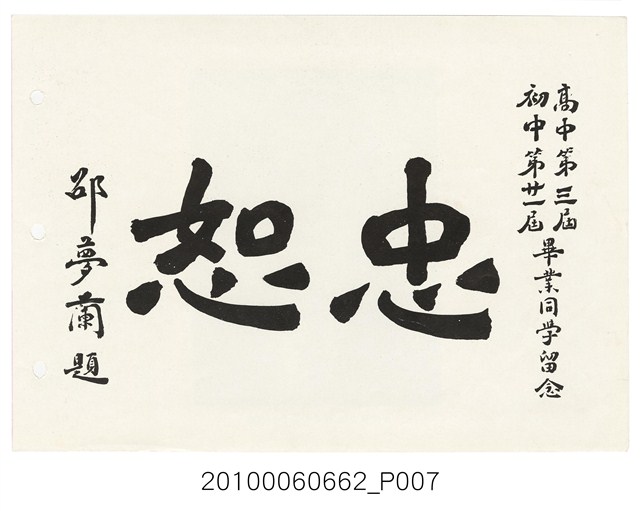 高中第三屆
初中第廿一屆
畢業同學留念
忠恕
邵夢蘭題
20100060662_P007